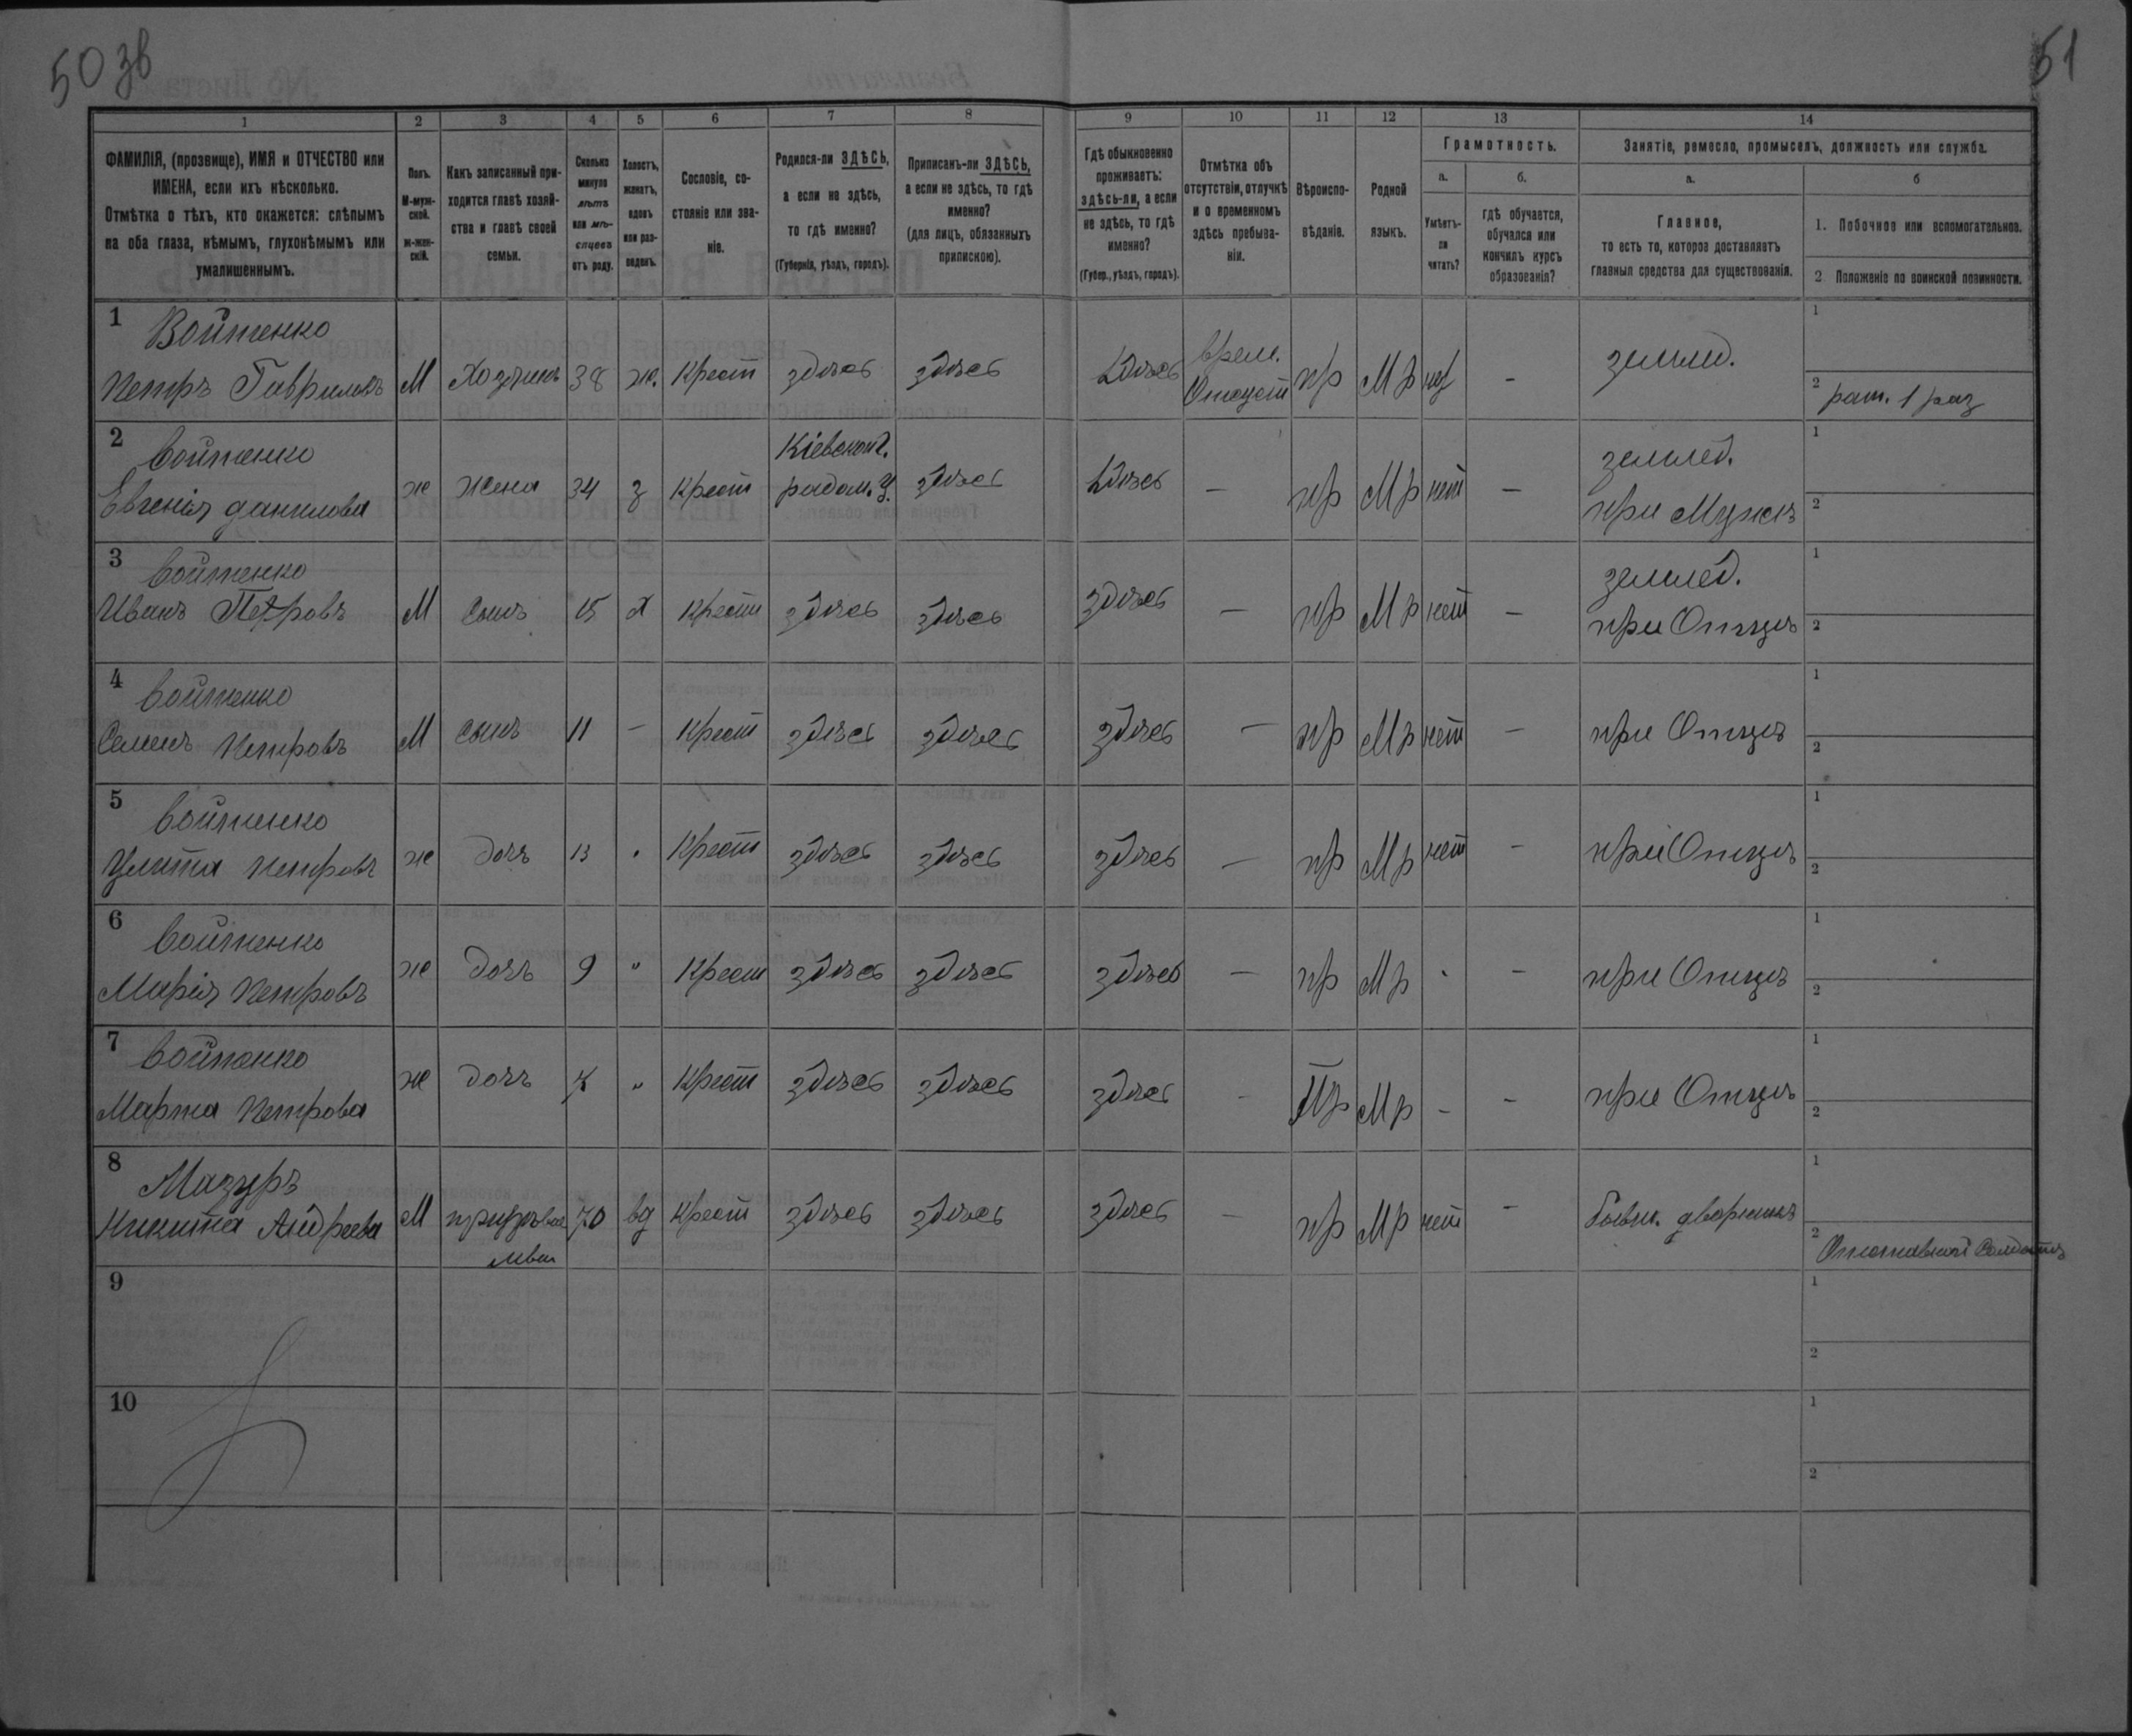 50 зв
51
1 2 3 4 5 6 7 8 9 10 11 12 13 14
ФАМИЛІЯ, (прозвище), ИМЯ и ОТЧЕСТВО или
ИМЕНА, если ихъ нѣсколько.
Отмѣтка о тѣхъ, кто окажется: слѣпымъ
на оба глаза, нѣмымъ, глухонѣмымъ или
умалишеннымъ.
Полъ.
М-муж-
ской.
ж-жен-
скій.
Какъ записанный при-
ходится главѣ хозяй-
ства и главѣ своей
семьи.
Сколько
минуло
лѣтъ
или мѣ-
сяцевъ
отъ роду.
Холостъ,
женатъ,
вдовъ
или раз-
веденъ.
Сословіе, со-
стояніе или зва-
ніе.
Родился-ли ЗДѢСЬ,
а если не здѣсь,
то гдѣ именно?
(Губернія, уѣздъ, городъ).
Приписанъ-ли ЗДѢСЬ,
а если не здѣсь, то гдѣ
именно?
(для лицъ, обязанныхъ
припискою).
Гдѣ обыкновенно
проживаетъ:
здѣсь-ли, а если
не здѣсь, то гдѣ
именно?
(Губер., уѣздъ, городъ).
Отмѣтка объ
отсутствіи, отлучкѣ
и о временномъ
здѣсь пребыва-
ніи.
Вѣроиспо-
вѣданіе.
Родной
языкъ.
Грамотность.
а.
Умѣетъ-
ли
читать?
б.
гдѣ обучается,
обучался или
кончилъ курсъ
образованія?
Занятіе, ремесло, промыселъ, должность или служба.
а.
Главное,
то есть то, которое доставляетъ
главныя средства для существованія.
б
1. Побочное или вспомогательное.
2. Положеніе по воинской повинности.
1 Войтенко
Петръ Гавриловъ М Хозяинъ 38 ж. Крест здѣсь здѣсь здѣсь врем.
Отсут пр Мр землед.
1
2 рат. 1 раз
2 Войтенко
Евгенія данилова ж жена 34 з Крест Кіевской г.
радом. У. здѣсь здѣсь — пр Мр нет — землед.
при Мужѣ
1
2
3 Войтенко
Иванъ Петровъ М сынъ 15 х Крест здѣсь здѣсь здѣсь — пр Мр нет — землед.
при Отцѣ
1
2
4 Войтенко
Семенъ Петровъ М сынъ 11 — Крест здѣсь здѣсь здѣсь — пр Мр нет — при Отцѣ
1
2
5 Войтенко
Улита Петровъ ж дочъ 13 Крест здѣсь здѣсь здѣсь — пр Мр нет — при Отцѣ
1
2
6 Войтенко
Марія Петровъ ж дочъ 9 " Крест здѣсь здѣсь здѣсь — пр Мр - — при Отцѣ
1
2
7 Войтенко
Марта Петрова ж дочъ " Крест здѣсь здѣсь здѣсь - Пр Мр - - при Отцѣ
1
2
8 Мазуръ
Никита Андреева М 70 вд Крест здѣсь здѣсь здѣсь — пр Мр нет — бывш. дворникъ
1
2 Отставной Солдатъ
9
1
2
10
1
2